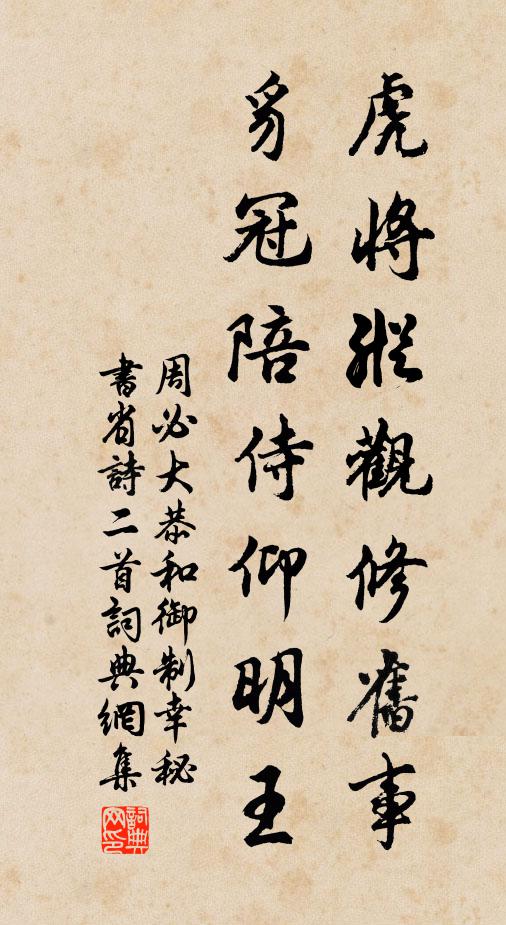 虎將縱觀修舊事
豸冠陪侍仰明王
周必大恭和御制幸秘
書省詩二首詞典網集
詞典
网印